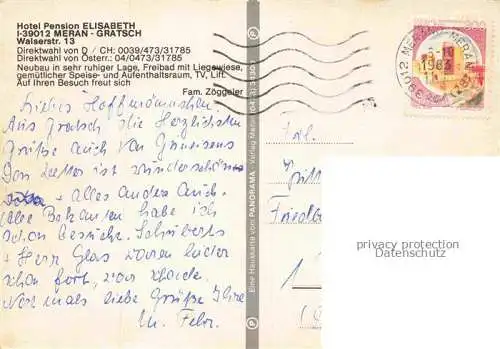 Hotel Pension ELISABETH
I-39012 MERAN - GRATSCH
Walserstr. 13
Direktwahl von D / CH: 0039/473/31785
Direktwahl von Österr.: 04/0473/31785
Neubau in sehr ruhiger Lage, Freibad mit Liegewiese,
gemütlicher Speise- und Aufenthaltsraum, TV, Lift.
Auf Ihren Besuch freut sich
Fam. Zöggeler
Liebes
Aus Gratsch die Herzlichsten
Grüße auch von
Das Wetter ist wunderschön
+ Alles andere auch.
Alle Bekannten habe ich
schon besucht. Schuberts
+ Herr Glas waren leider
schon fort, war schade.
Nochmals liebe Grüße Ihre
Eine Hauskarte von PANORAMA Verlag Meran
39012 MERANO-MERAN
1983
Frl.
Friedb
privacy protection
Datenschutz